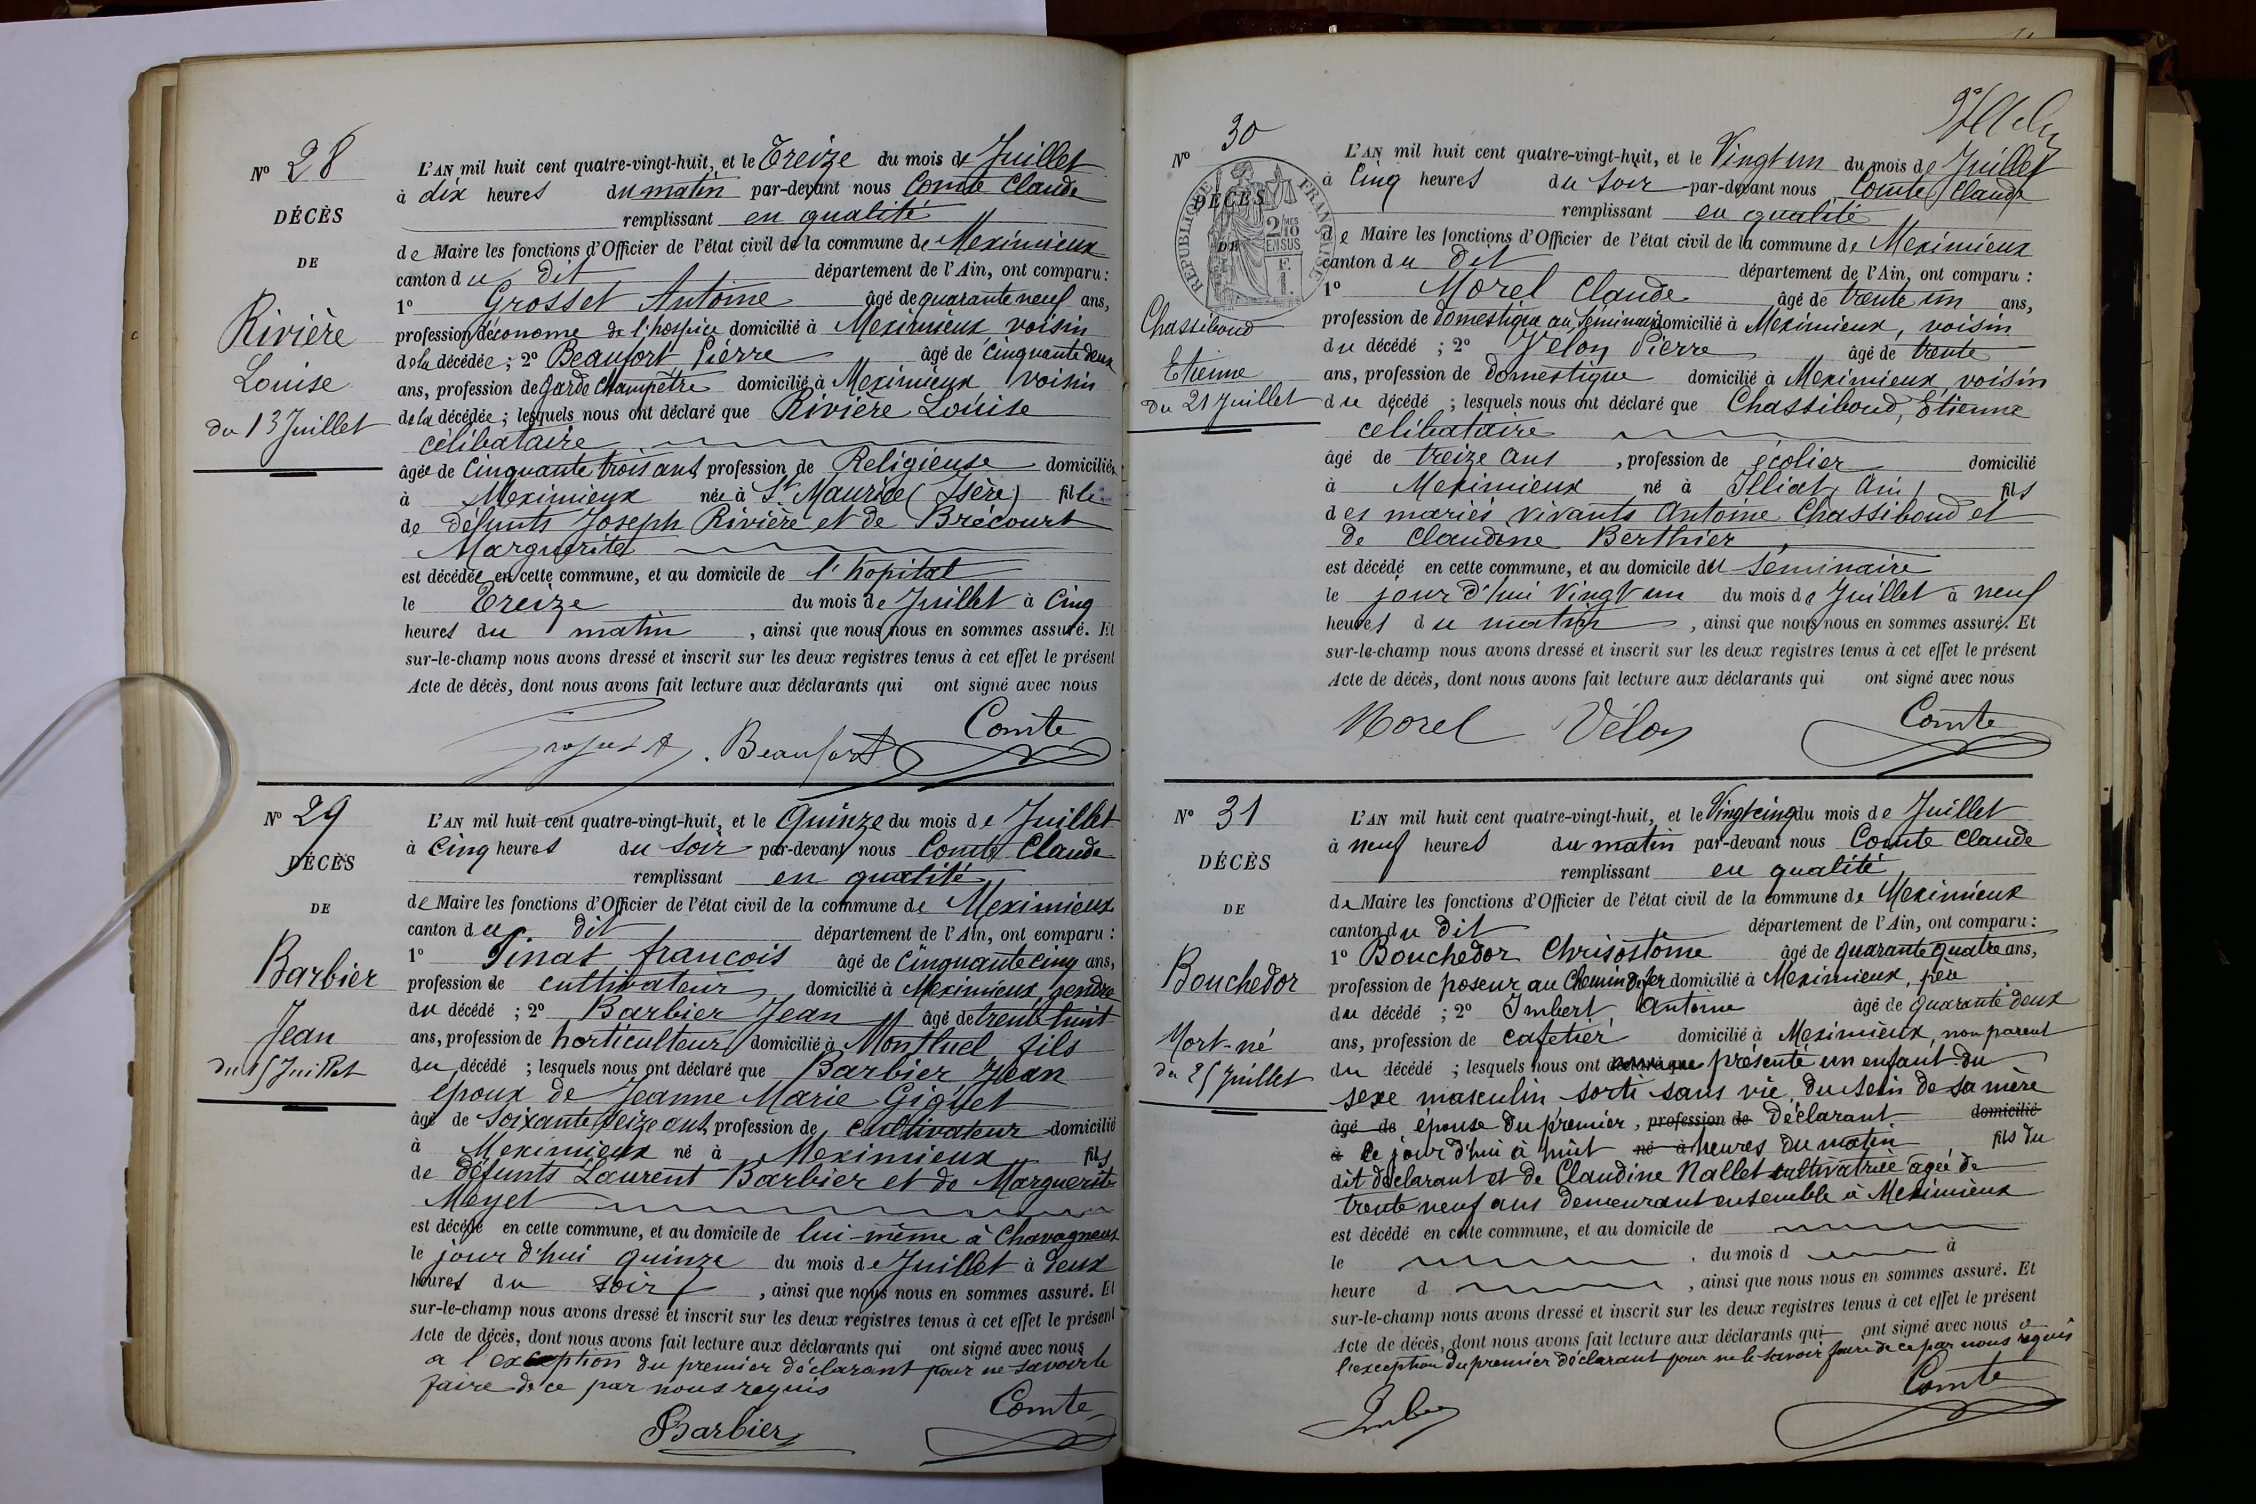 N° 28
DÉCÈS
DE
Rivière
Louise
du 13 Juillet
L'AN mil huit cent quatre-vingt-huit, et le Treize du mois de Juillet
à dix heures du matin par-devant nous Comte Claude
remplissant en qualité
de Maire les fonctions d'Officier de l'état civil de la commune de Meximieux
canton du dit département de l'Ain, ont comparu :
1° Grosset Antoine âgé de quarante neuf ans,
profession d'économe de l'hospice domicilié à Meximieux voisin
de la décédée ; 2° Beaufort Pierre âgé de cinquante deux
ans, profession de garde champêtre domicilié à Meximieux voisin
de la décédée ; lesquels nous ont déclaré que Rivière Louise
célibataire
âgée de cinquante trois ans, profession de Religieuse domiciliée
à Meximieux née à St Maurice (Isère) fille
de défunts Joseph Rivière et de Brécourt
Marguerite
est décédée en cette commune, et au domicile de l'hopital
le Treize du mois de Juillet à cinq
heures du matin , ainsi que nous nous en sommes assuré. Et
sur-le-champ nous avons dressé et inscrit sur les deux registres tenus à cet effet le présent
Acte de décès, dont nous avons fait lecture aux déclarants qui ont signé avec nous
Beaufort Comte
N° 29
DÉCÈS
DE
Barbier
Jean
du 15 Juillet
L'AN mil huit cent quatre-vingt-huit, et le Quinze du mois de Juillet
à cinq heures du soir par-devant nous Comte Claude
remplissant en qualité
de Maire les fonctions d'Officier de l'état civil de la commune de Meximieux
canton du dit département de l'Ain, ont comparu :
1° Pinat francois âgé de cinquante cinq ans,
profession de cultivateur domicilié à Meximieux, gendre
du décédé ; 2° Barbier Jean âgé de trente huit
ans, profession de horticulteur domicilié à Montluel fils
du décédé ; lesquels nous ont déclaré que Barbier Jean
époux de Jeanne Marie Giguet
âgé de soixante seize ans, profession de cultivateur domicilié
à Meximieux né à Meximieux fils
de défunts Laurent Barbier et de Marguerite
Meyet
est décédé en cette commune, et au domicile de lui-même à Chavagneux
le jour d'hui quinze du mois de Juillet à deux
heures du soir , ainsi que nous nous en sommes assuré. Et
sur-le-champ nous avons dressé et inscrit sur les deux registres tenus à cet effet le présent
Acte de décès, dont nous avons fait lecture aux déclarants qui ont signé avec nous
a l'exception du premier déclarant pour ne savoir le
faire de ce par nous requis
Barbier Comte
N° 30
DÉCÈS
DE
RÉPUBLIQUE FRANÇAISE
2/10MES
EN SUS
Chassiboud
Etienne
du 21 Juillet
L'AN mil huit cent quatre-vingt-huit, et le Vingt un du mois de Juillet
à Cinq heures du soir par-devant nous Comte Claude
remplissant en qualité
de Maire les fonctions d'Officier de l'état civil de la commune de Meximieux
canton du dit département de l'Ain, ont comparu :
1° Morel Claude âgé de trente un ans,
profession de domestique au séminaire domicilié à Meximieux, voisin
du décédé ; 2° Vélon Pierre âgé de trente
ans, profession de domestique domicilié à Meximieux voisin
du décédé ; lesquels nous ont déclaré que Chassiboud, Etienne
célibataire
âgé de treize ans , profession de écolier domicilié
à Meximieux né à Illiat (Ain) fils
des mariés vivants Antoine Chassiboud et
de Claudine Berthier
est décédé en cette commune, et au domicile du séminaire
le jour d'hui vingt un du mois de Juillet à neuf
heures du matin , ainsi que nous nous en sommes assuré. Et
sur-le-champ nous avons dressé et inscrit sur les deux registres tenus à cet effet le présent
Acte de décès, dont nous avons fait lecture aux déclarants qui ont signé avec nous
Morel Vélon Comte
N° 31
DÉCÈS
DE
Bouchedor
Mort-né
du 25 Juillet
L'AN mil huit cent quatre-vingt-huit, et le Vingt cinq du mois de Juillet
à neuf heures du matin par-devant nous Comte Claude
remplissant en qualité
de Maire les fonctions d'Officier de l'état civil de la commune de Meximieux
canton du dit département de l'Ain, ont comparu :
1° Bouchedor Chrisostome âgé de quarante quatre ans,
profession de poseur au chemin de fer domicilié à Meximieux, père
du décédé ; 2° Imbert Antoine âgé de quarante deux
ans, profession de cafetier domicilié à Meximieux, non parent
du décédé ; lesquels nous ont déclaré que présenté un enfant du
sexe masculin sorti sans vie, du sein de sa mère
âgé de épouse du premier, profession de déclarant domicilié
à le jour d'hui à huit né à heures du matin fils du
dit déclarant et de Claudine Nallet cultivatrice âgée de
trente neuf ans demeurant ensemble à Meximieux
est décédé en cette commune, et au domicile de
le du mois d à
heure d , ainsi que nous nous en sommes assuré. Et
sur-le-champ nous avons dressé et inscrit sur les deux registres tenus à cet effet le présent
Acte de décès, dont nous avons fait lecture aux déclarants qui ont signé avec nous à
l'exception du premier déclarant pour ne le savoir faire de ce par nous requis
Comte